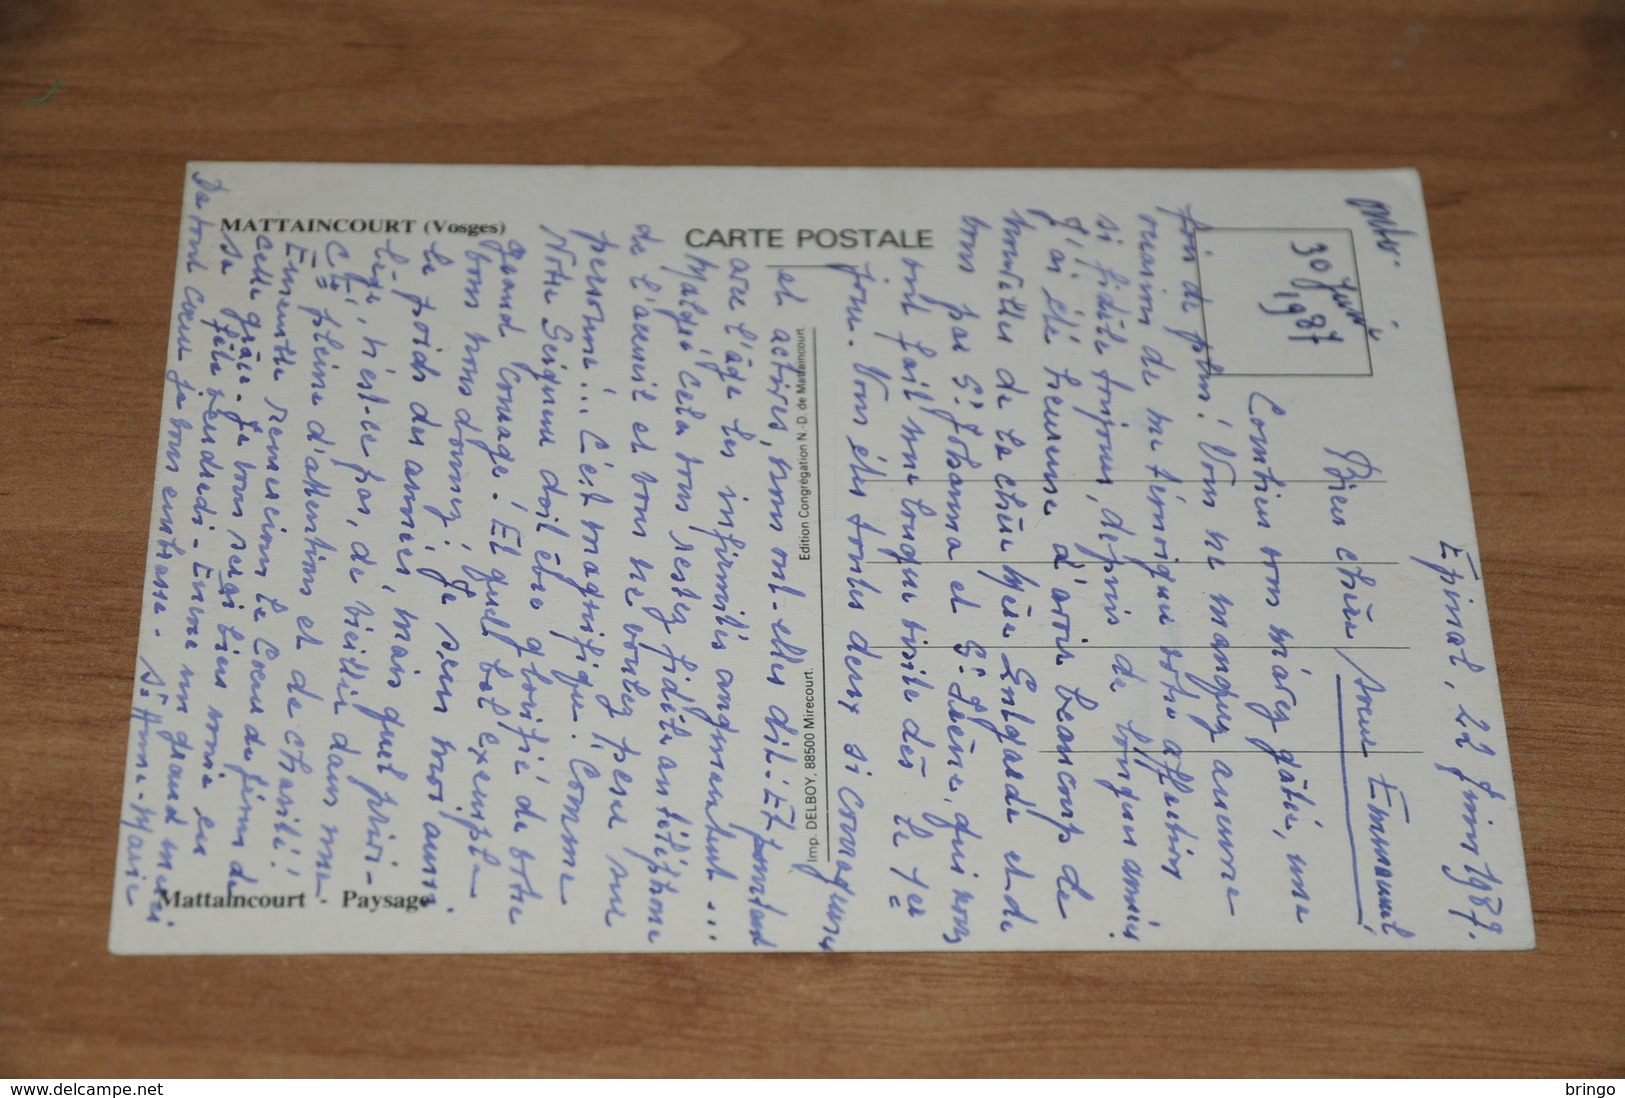 MATTAINCOURT (Vosges)
CARTE POSTALE
Edition Congrégation N.-D. de Mattaincourt.
Imp. DELBOY, 88500 Mirecourt.
Mattaincourt - Paysage
30 Juin
1987
Epinal, 22 Juin 1987.
Bien chère Soeur Emmanuel,
Combien vous m'avez gâtée, une
fois de plus! Vous ne manquez aucune
occasion de me témoigner votre affection
si fidèle toujours, depuis de longues années!
J'ai été heureuse d'avoir beaucoup de
nouvelles de la chère Mère Enlgarde et de
vous par Sr Johanna et Sr Irène, qui nous
ont fait une longue visite dès le 1er
jour. Vous êtes toutes deux si courageuses
et actives, nous ont-elles dit. Et pourtant
avec l'âge les infirmités augmentent...
Malgré cela vous restez fidèle au téléphone
de l'accueil et vous ne voulez peser sur
personne!... C'est magnifique! Comme
Notre Seigneur doit être glorifié de votre
grand courage. Et quel bel exemple
vous nous donnez! Je sens moi aussi
le poids des années, mais quel privi-
lège, n'est-ce pas, de vieillir dans une
Cté pleine d'attentions et de charité!
Ensemble remercions le Coeur de Jésus de
cette grâce. Je vous serai bien unie en
sa fête vendredi. Encore un grand merci
De tout coeur je vous embrasse. Sr Anne-Marie
delcampe.net
bringo